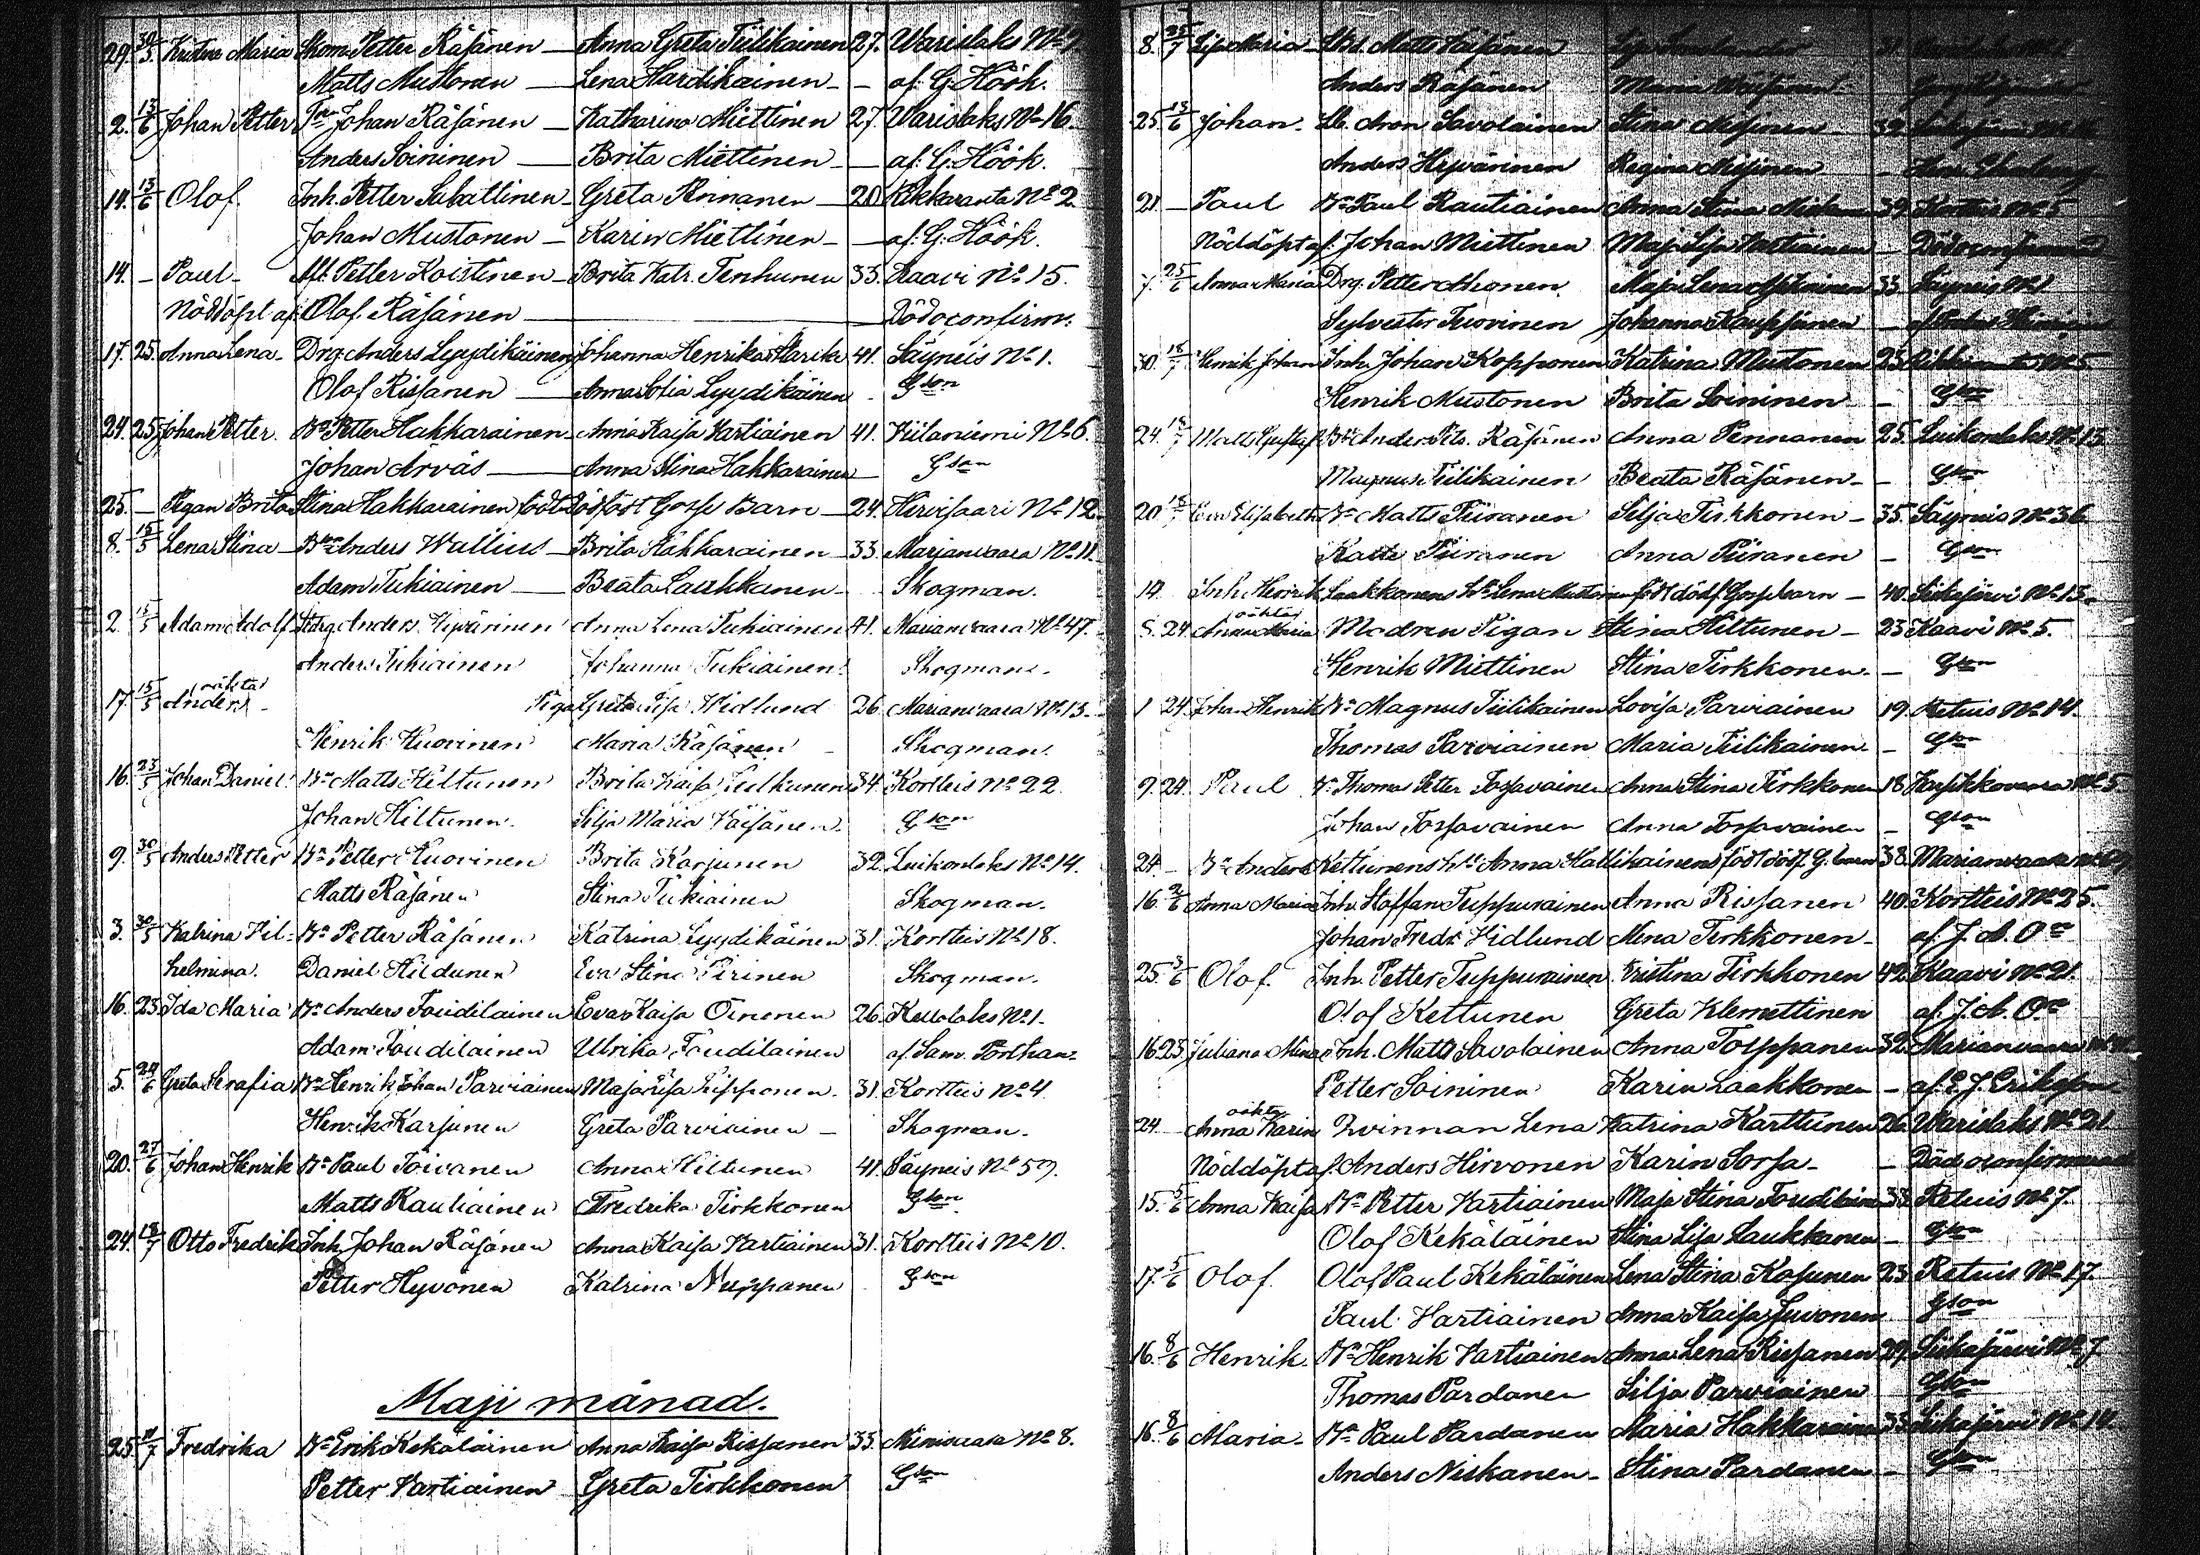 29. 30/5 Kristina Maria Skom. Petter Räsänen — Anna Greta Tiilikainen 27. Warislaks No
Matts Mustonen — Lena Hardikainen — af. G. Höök.
2. 13/6 Johan Petter Johan Räsänen — Katharina Miettinen 27. Warislaks No 16.
Anders Soininen — Brita Miettinen — af. G. Höök.
14. 13/6 Olof. Inh. Petter Sabattinen — Greta Pennanen — 20 Rikkaranta No 2
Johan Mustonen — Karin Miettinen — af. G. Höök.
14. — Paul — Petter Koistinen — Brita Katr. Tenhunen 33. Kaavi No 15.
Nöddöpt af Olof Räsänen — Död oconfirm.
17. 25. Anna Lena — Drg. Anders Lyydikäinen Johanna Henrika Starck 41. Säyneis No 1.
Olof Rissanen — Anna Sofia Lyydikäinen Gson
24. 25 Johan Petter. Bn Petter Hakkarainen — Anna Kaisa Vartiainen 41. Viilaniemi No 6.
Johan Arväs — Anna Stina Hakkarainen — Gson
25. — Pigan Brita Stina Hakkarainen födt dödfödt Gosse Barn — 24. Hirvisaari No 12
8. 15/5 Lena Stina — Bn Anders Wallius — Brita Hakkarainen — 33. Marjanvaara No 11.
Adam Tukiainen — Beata Laukkanen — Skogman.
2. 15/5 Adam Adolf Anders Hyvärinen Anna Lena Tukiainen 41. Marianvaara No 47.
Anders Tukiainen Johanna Tukiainen Skogman.
17. 15/5 oäkta Anders — Piga Greta Lisa Hidlund 26. Marianvaara No 13.
Henrik Kuovinen Maria Räsänen — Skogman.
16. 23/5 Johan Daniel Bn Matts Hiltunen Brita Kaisa 34. Kortteis No 22.
Johan Hiltunen. Silja Maria Väisänen. Gson
9. 30/5 Anders Petter Bn Petter Kuovinen Brita Karjunen 32. Luikonlaks No 14.
Matts Räsänen Stina Tukiainen Skogman.
3. 30/5 Katrina Vil- Bn Petter Räsänen Katrina Lyydikäinen 31. Kortteis No 18.
helmina. Daniel Hildunen Eva Stina Pirinen Skogman.
16. 23 Ida Maria Bn Anders Toudilainen Eva Kaisa Oinonen 26. Kellolaks No 1.
Adam Toudilainen Ulrika Toudilainen af Sam. Porthan.
5. 24/6 Greta Serafia Bn Henrik Johan Parviainen Maja Lisa 31. Kortteis No 4.
Henrik Karjunen Greta Parviainen — Skogman.
20. 27/6 Johan Henrik Bn Paul Toivanen Anna Hiltunen 41. Säyneis No 59.
Matts Rautiainen Fredrika Tirkkonen Gson
24. 18/7 Otto Fredrik Inh. Johan Räsänen Anna Kaisa Vartiainen 31. Kortteis No 10.
Petter Hyvönen Katrina Nuppanen Gson
Maji månad.
25. Fredrika Bn Erik Kekäläinen Anna Kaisa Rissanen 33. No 8.
Petter Vartiainen Greta Tirkkonen Gson
8. 25/7 Lisa Maria — Matts Väisänen
Anders Räsänen Maria
25. 13/6 Johan — Aron Savolainen Stina 32
Anders Hyvärinen Regina
21 — Paul Bn Paul Rautiainen Anna Stina 39 Kortteis No 5
Nöddöpt af. Johan Miettinen Maja Lisa Vartiainen — Död oconfirmerad
7. 25/6 Anna Maria Drg. Petter Ahonen. Maja Lena 33 Säyneis No 1
Sylvester Tuovinen Johanna Kauppinen
30. 18/7 Henrik Johan Inh. Johan Kopponen Katrina Mustonen 23 No 5.
Henrik Mustonen Brita Soininen — Gson
24. 18/7 Matts Gustaf Bn Anders Räsänen Anna Pennanen 25. Luikonlaks No 15
Magnus Tiilikainen Beata Räsänen — Gson
20. 18/7 Elisabeth Bn Matts Piiranen Silja Tirkkonen — 35. Säyneis No 36
Piiranen Anna Piiranen — Gson
14. Inh. Henrik Laakkonens h. Lena Mustonen födt dödf. Gossbarn — 40. Siikajärvi No 15.
5. 24. oäkta Anna Maria Modren Pigan Stina Hiltunen — 23 Kaavi No 5.
Henrik Miettinen Stina Tirkkonen — Gson
1 24. Johan Henrik Bn Magnus Tiilikainen Lovisa Parviainen 19. Retuis No 14.
Thomas Parviainen Maria Tiilikainen — Gson
9. 24. Paul Bn Thomas Petter Tossavainen Anna Stina Tirkkonen 18. No 5
Johan Tossavainen Anna Tossavainen — Gson
24. — Bn Anders Kettunens h. Anna Hallikainen födt dödf. G. barn 38. Marianvaara
16. 2/6 Anna Maria Inh. Staffan Tuppurainen Anna Rissanen 40. Kortteis No 25.
Johan Fredr. Hidlund Mena Tirkkonen — af J. A.
25. 3/6 Olof. Inh. Petter Tuppurainen Kristina Tirkkonen 42. Kaavi No 21.
Olof Kettunen Greta Klemettinen af J. A.
16. 23 Juliana Mina Inh. Matts Savolainen Anna Toppanen 32. Marianvaara
Petter Soininen Karin Laakkonen — af E. J. Eriksson
24. — oäkta Anna Karin Qvinnan Lena Katrina Karttunen 26. Warislaks No 21
Nöddöpt af. Anders Hirvonen Karin Sorsa — Död oconfirmerad
15. 5/6 Anna Kaisa Bn Petter Vartiainen Maja Stina Toudilainen 33 Retuis No 7.
Olof Kekäläinen Stina Lisa Laukkanen — Gson
17. 5/6 Olof. Olof Paul Kekäläinen Lena Stina Kosunen 23. Retuis No 17.
Paul Hartiainen Anna Kaisa Juvonen Gson
16. 8/6 Henrik. Bn Henrik Vartiainen Anna Lena Rissanen 29. Siikajärvi No 7
Thomas Pardanen Silja Parviainen Gson
16. 8/6 Maria — Bn Paul Pardanen Maria Hakkarainen 33 Siikajärvi No 14
Anders Niskanen — Stina Pardanen — Gson